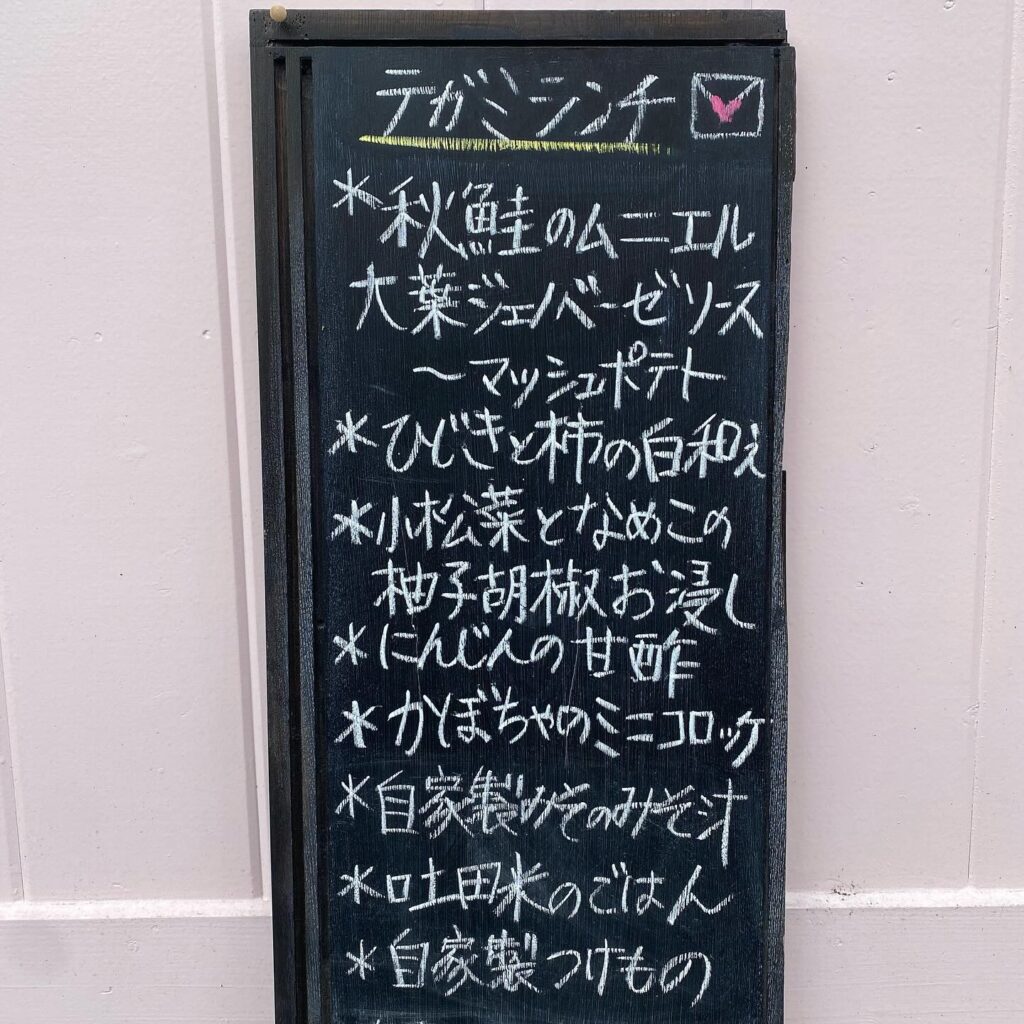 テガミランチ
*秋鮭のムニエル
大葉ジェノバーゼソース
〜マッシュポテト
*ひじきと柿の白和え
*小松菜となめこの
柚子胡椒お浸し
*にんじんの甘酢
*かぼちゃのミニコロッケ
*自家製みそのみそ汁
*吐田米のごはん
*自家製つけもの